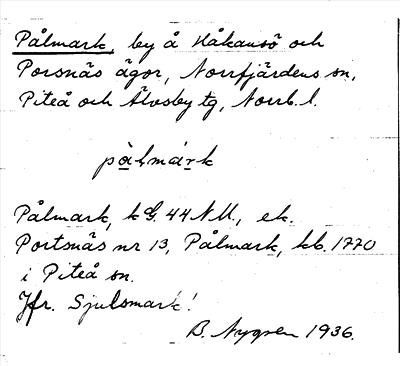 Pålmark, by å Håkansö och
Porsnäs ägor, Norrfjärdens sn,
Piteå och Älvsby tg, Norrb. l.
pålmárk
Pålmark, k G. 44 N U., ek.
Portsnäs nr 13, Pålmark, kb. 1770
i Piteå sn.
Jfr. Sjulsmark!
B. Nygren 1936.